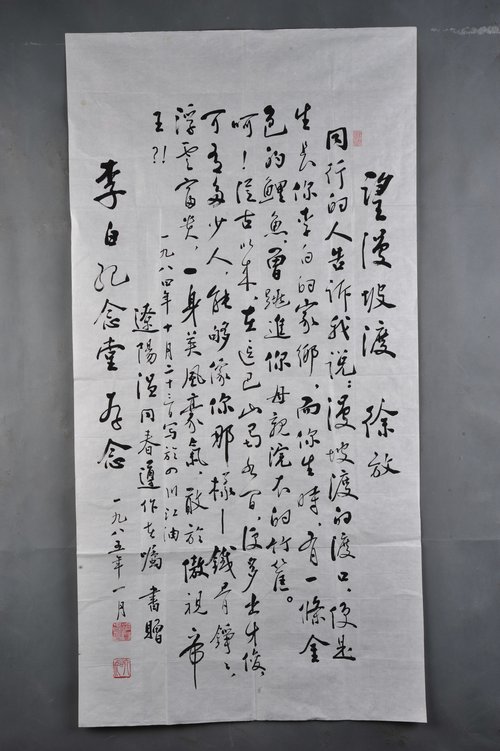 望漫坡渡 徐放
同行的人告訴我说:漫坡渡的渡口,便是
生長你李白的家鄉,而你生時,有一條金
色的鯉魚,曾跳進你母親浣衣的竹筐。
呵!從古以来,在這巴山蜀水间,便多出才俊,
可有多少人,能够像你那樣—鐵骨錚々,
浮雲富贵,一身英風豪氣,敢於傲視帝
王?!
一九八四年十月二十三日写於四川江油
遼陽温同春遵作者嘱 書贈
李白纪念堂存念
一九八五年一月